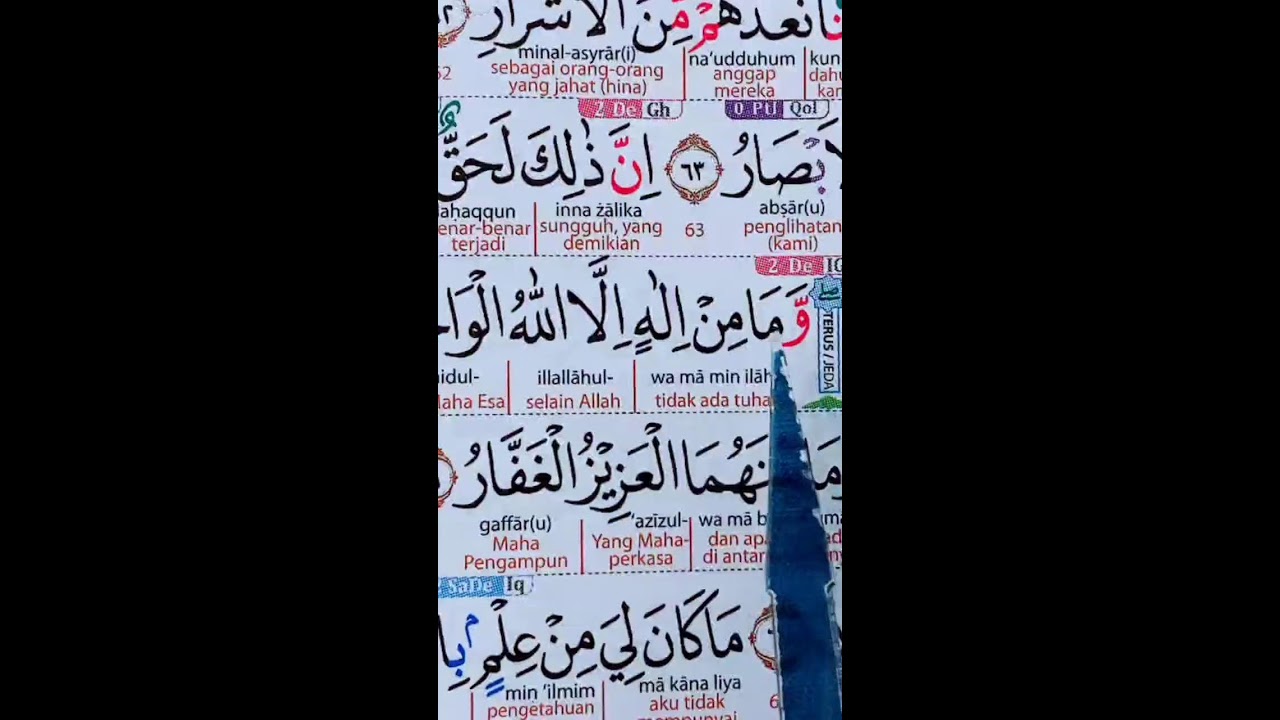 نَعُدُّهُمْ مِّنَ الْاَشْرَارِ
minal-asyrār(i) na‘udduhum kun
sebagai orang-orang anggap dahu
yang jahat (hina) mereka kam
2 De Gh 0 Ptf Qol
بْصَارُ ٦٣ اِنَّ ذٰلِكَ لَحَقٌّ
aḥaqqun inna żālika abṣār(u)
enar-benar sungguh, yang 63 penglihatan
terjadi demikian (kami)
2 De
وَّمَا مِنْ اِلٰهٍ اِلَّا اللّٰهُ الْوَا
TERUS / JEDA
idul- illallāhul- wa mā min ilāh
aha Esa selain Allah tidak ada tuha
نَهُمَا الْعَزِيْزُ الْغَفَّارُ
gaffār(u) ‘azīzul- wa mā b
Maha Yang Maha- dan apa
Pengampun perkasa di antar
SaDe Iq
مَا كَانَ لِيَ مِنْ عِلْمٍ بِا
min ‘ilmim mā kāna liya
pengetahuan aku tidak
mempunyai